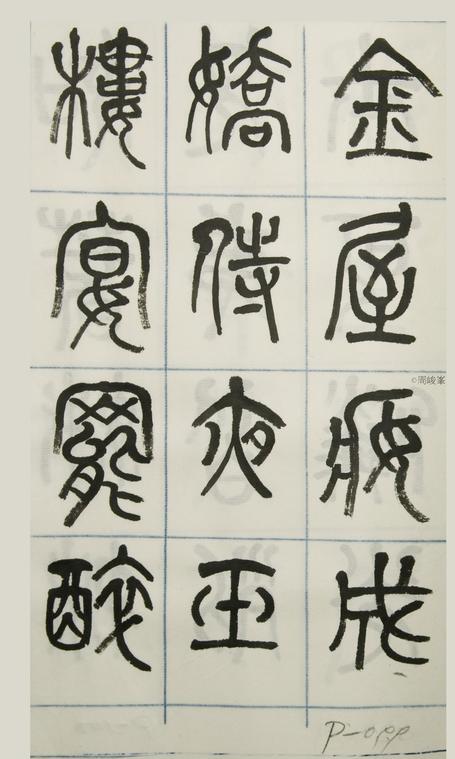 金屋妝成
嬌侍夜玉
樓宴罷醉
©周峻峯
P-099